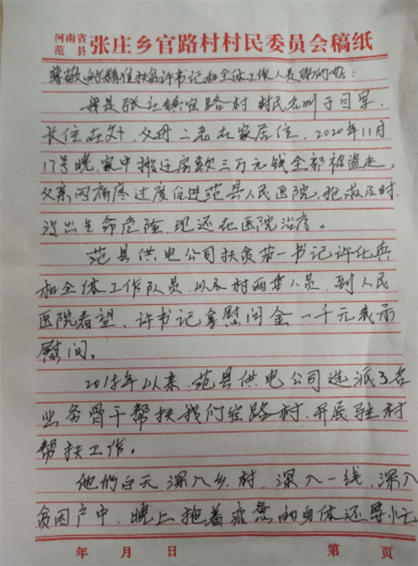 河南省
范 县
张庄乡官路村村民委员会稿纸
尊敬的驻官路村扶贫许书记和全体工作人员
我是张庄乡官路村村民名叫于
长住在外，父母二老在家居住，2020年11月
17号晚，家中搬迁房款三万元钱全部被盗走，
父亲因痛疼过度住进范县人民医院，抢救及时，
没出生命危险，现还在医院治疗。
范县供电公司扶贫第一书记许化
和全体工作队员，以及村两委人员，到人民
医院看望，许书记拿慰问金一千元表示
慰问。
以来，范县供电公司选派3名
业务骨干帮扶我们官路村，开展驻村
帮扶工作。
他们白天深入乡村，深入一线，深入
贫困户中，晚上拖着疲惫的身体还要
年 月 日
第 页